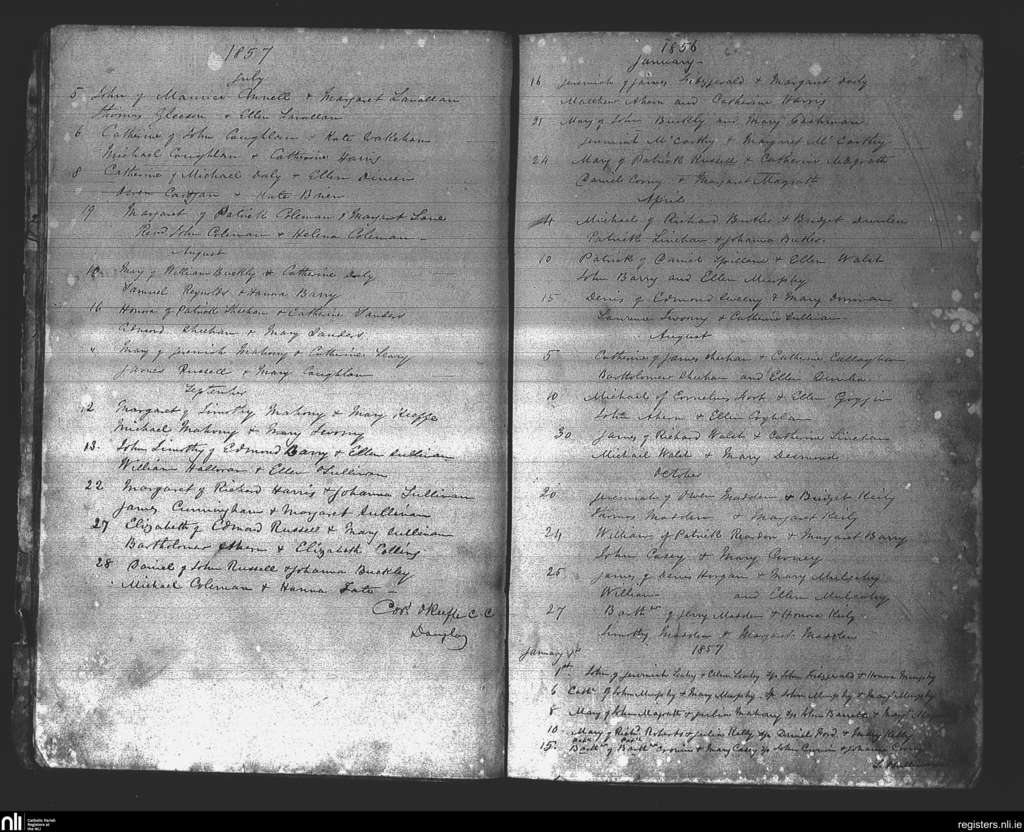 1857
July
5 John of Maurice Connell & Margaret Lavallan
Thomas Gleeson & Ellen Lavallan
6 Catherine of John Coughlan & Kate Wakeham
Michael Coughlan & Catherine Harris
8 Catherine of Michael Daly & Ellen Dineen
Owen & Kate Brien
19 Margaret of Patrick Coleman & Margret Lane
Revd John Coleman & Helena Coleman
August
Mary of William Buckly & Catherine Daly
Samuel Reynolds & Hanna Barry
16 Honora of Patrick Sheehan & Catherine Sanders
Edmond Sheehan & Mary Sanders
" Mary of Jeremiah Mahony & Catherine Leary
James Russell & Mary Coughlan
September
12 Margaret of Timothy Mahony & Mary Keeffe
Michael Mahony & Mary Twomy
13 John Timothy of Edmond Barry & Ellen Sullivan
William Halloran & Ellen OSullivan
22 Margaret of Richard Harris & Johanna Sullivan
James Cunningham & Margaret Sullivan
27 Elizabeth of Edmond Russell & Mary Sullivan
Bartholomew Ahern & Elizabeth Collins
28 Daniel of John Russell & Johanna Buckley
Michael Coleman & Hanna
Cors OKeeffe C.C
1856
January
16 Jeremiah of James Fitzgerald & Margaret Daly
Matthew Ahern and Catherine Harris
21 Mary of John Buckly and Mary Cashman
Jeremiah McCarthy & Margaret McCarthy
24 Mary of Patrick Russell & Catherine Magrath
Daniel & Margaret Magrath
April
4 Michael of Richard Butler & Bridget
Patrick Linehan & Johanna Butler
10 Patrick of Daniel Spillane & Ellen Walsh
John Barry and Ellen Murphy
15 Denis of Edmond Sweeny & Mary
Laurence Twomy & Catherine Sullivan
August
5 Catherine of James Sheehan & Catherine Callaghan
Bartholomew Sheehan and Ellen
10 Michael of Cornelius & Ellen Goggin
John Ahern & Ellen Coghlan
30 James of Richard Walsh & Catherine Linehan
Michael Walsh & Mary Desmond
October
20 Jeremiah of Owen Madden & Bridget Kiely
Thomas Madden & Margaret Kiely
24 William of Patrick Reardon & Margaret Barry
John Casey & Mary Cooney
25 James of Denis Horgan & Mary Mulcahy
William and Ellen Mulcahy
27 Barthw of Jerry Madden & Honora Kiely
Timothy Madden & Margaret Madden
1857
January
1st John of Jeremiah & Ellen Sp John Fitzgerald & Honora Murphy
6 Cathe of John Murphy & Mary Murphy Sp John Murphy & Mary Murphy
8 Mary of John Magrath & Julia Mahony Sp John Barrett & Mary
10 Mary of Richd Roberts & Julia Kelly Sp Daniel Ford & Mary Kelly
15 Barthw of Barthw Cronin & Mary Casey Sp John Cronin & Johanna
nli
Catholic Parish
Registers at
the NLI
registers.nli.ie